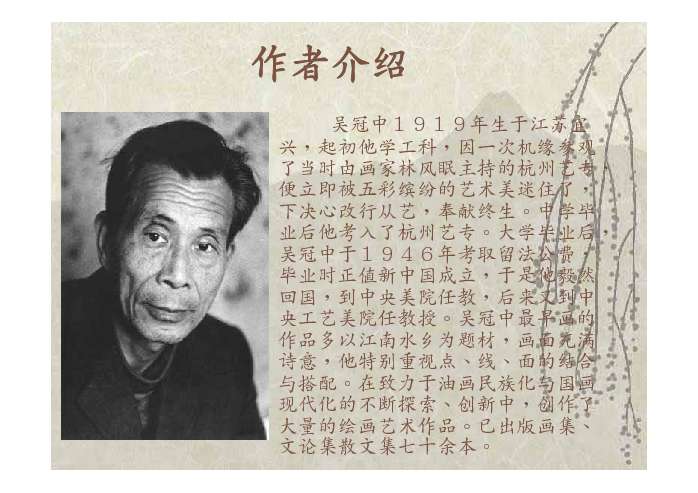 作者介绍
吴冠中１９１９年生于江苏宜
兴，起初他学工科，因一次机缘参观
了当时由画家林风眠主持的杭州艺专，
便立即被五彩缤纷的艺术美迷住了，
下决心改行从艺，奉献终生。中学毕
业后他考入了杭州艺专。大学毕业后，
吴冠中于１９４６年考取留法公费，
毕业时正值新中国成立，于是他毅然
回国，到中央美院任教，后来又到中
央工艺美院任教授。吴冠中最早画的
作品多以江南水乡为题材，画面充满
诗意，他特别重视点、线、面的结合
与搭配。在致力于油画民族化与国画
现代化的不断探索、创新中，创作了
大量的绘画艺术作品。已出版画集、
文论集散文集七十余本。